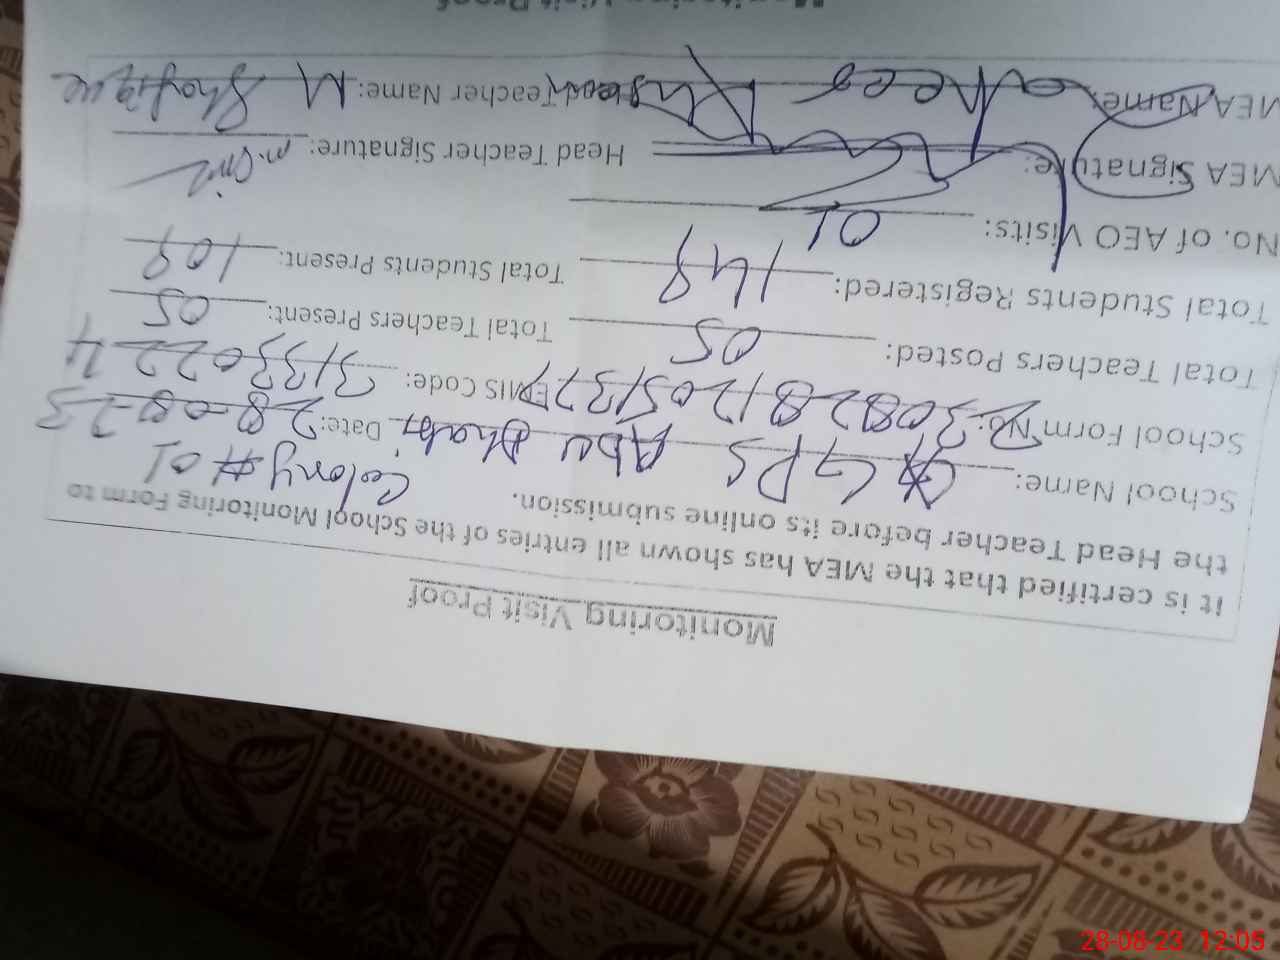 Monitoring Visit Proof
it is certified that the MEA has shown all entries of the School Monitoring Form to
the Head Teacher before its online submission.
School Name: GPS Abu Dhabi Colony # 01 Date: 28-08-23
School Form No: EMIS Code: 31330224
Total Teachers Posted: 05 Total Teachers Present: 05
Total Students Registered: 148 Total Students Present: 109
No. of AEO Visits: 01
MEA Signature: Head Teacher Signature:
MEA Name: Head Teacher Name: M Shafique
Monitoring Visit Proof
28-08-23 12:05